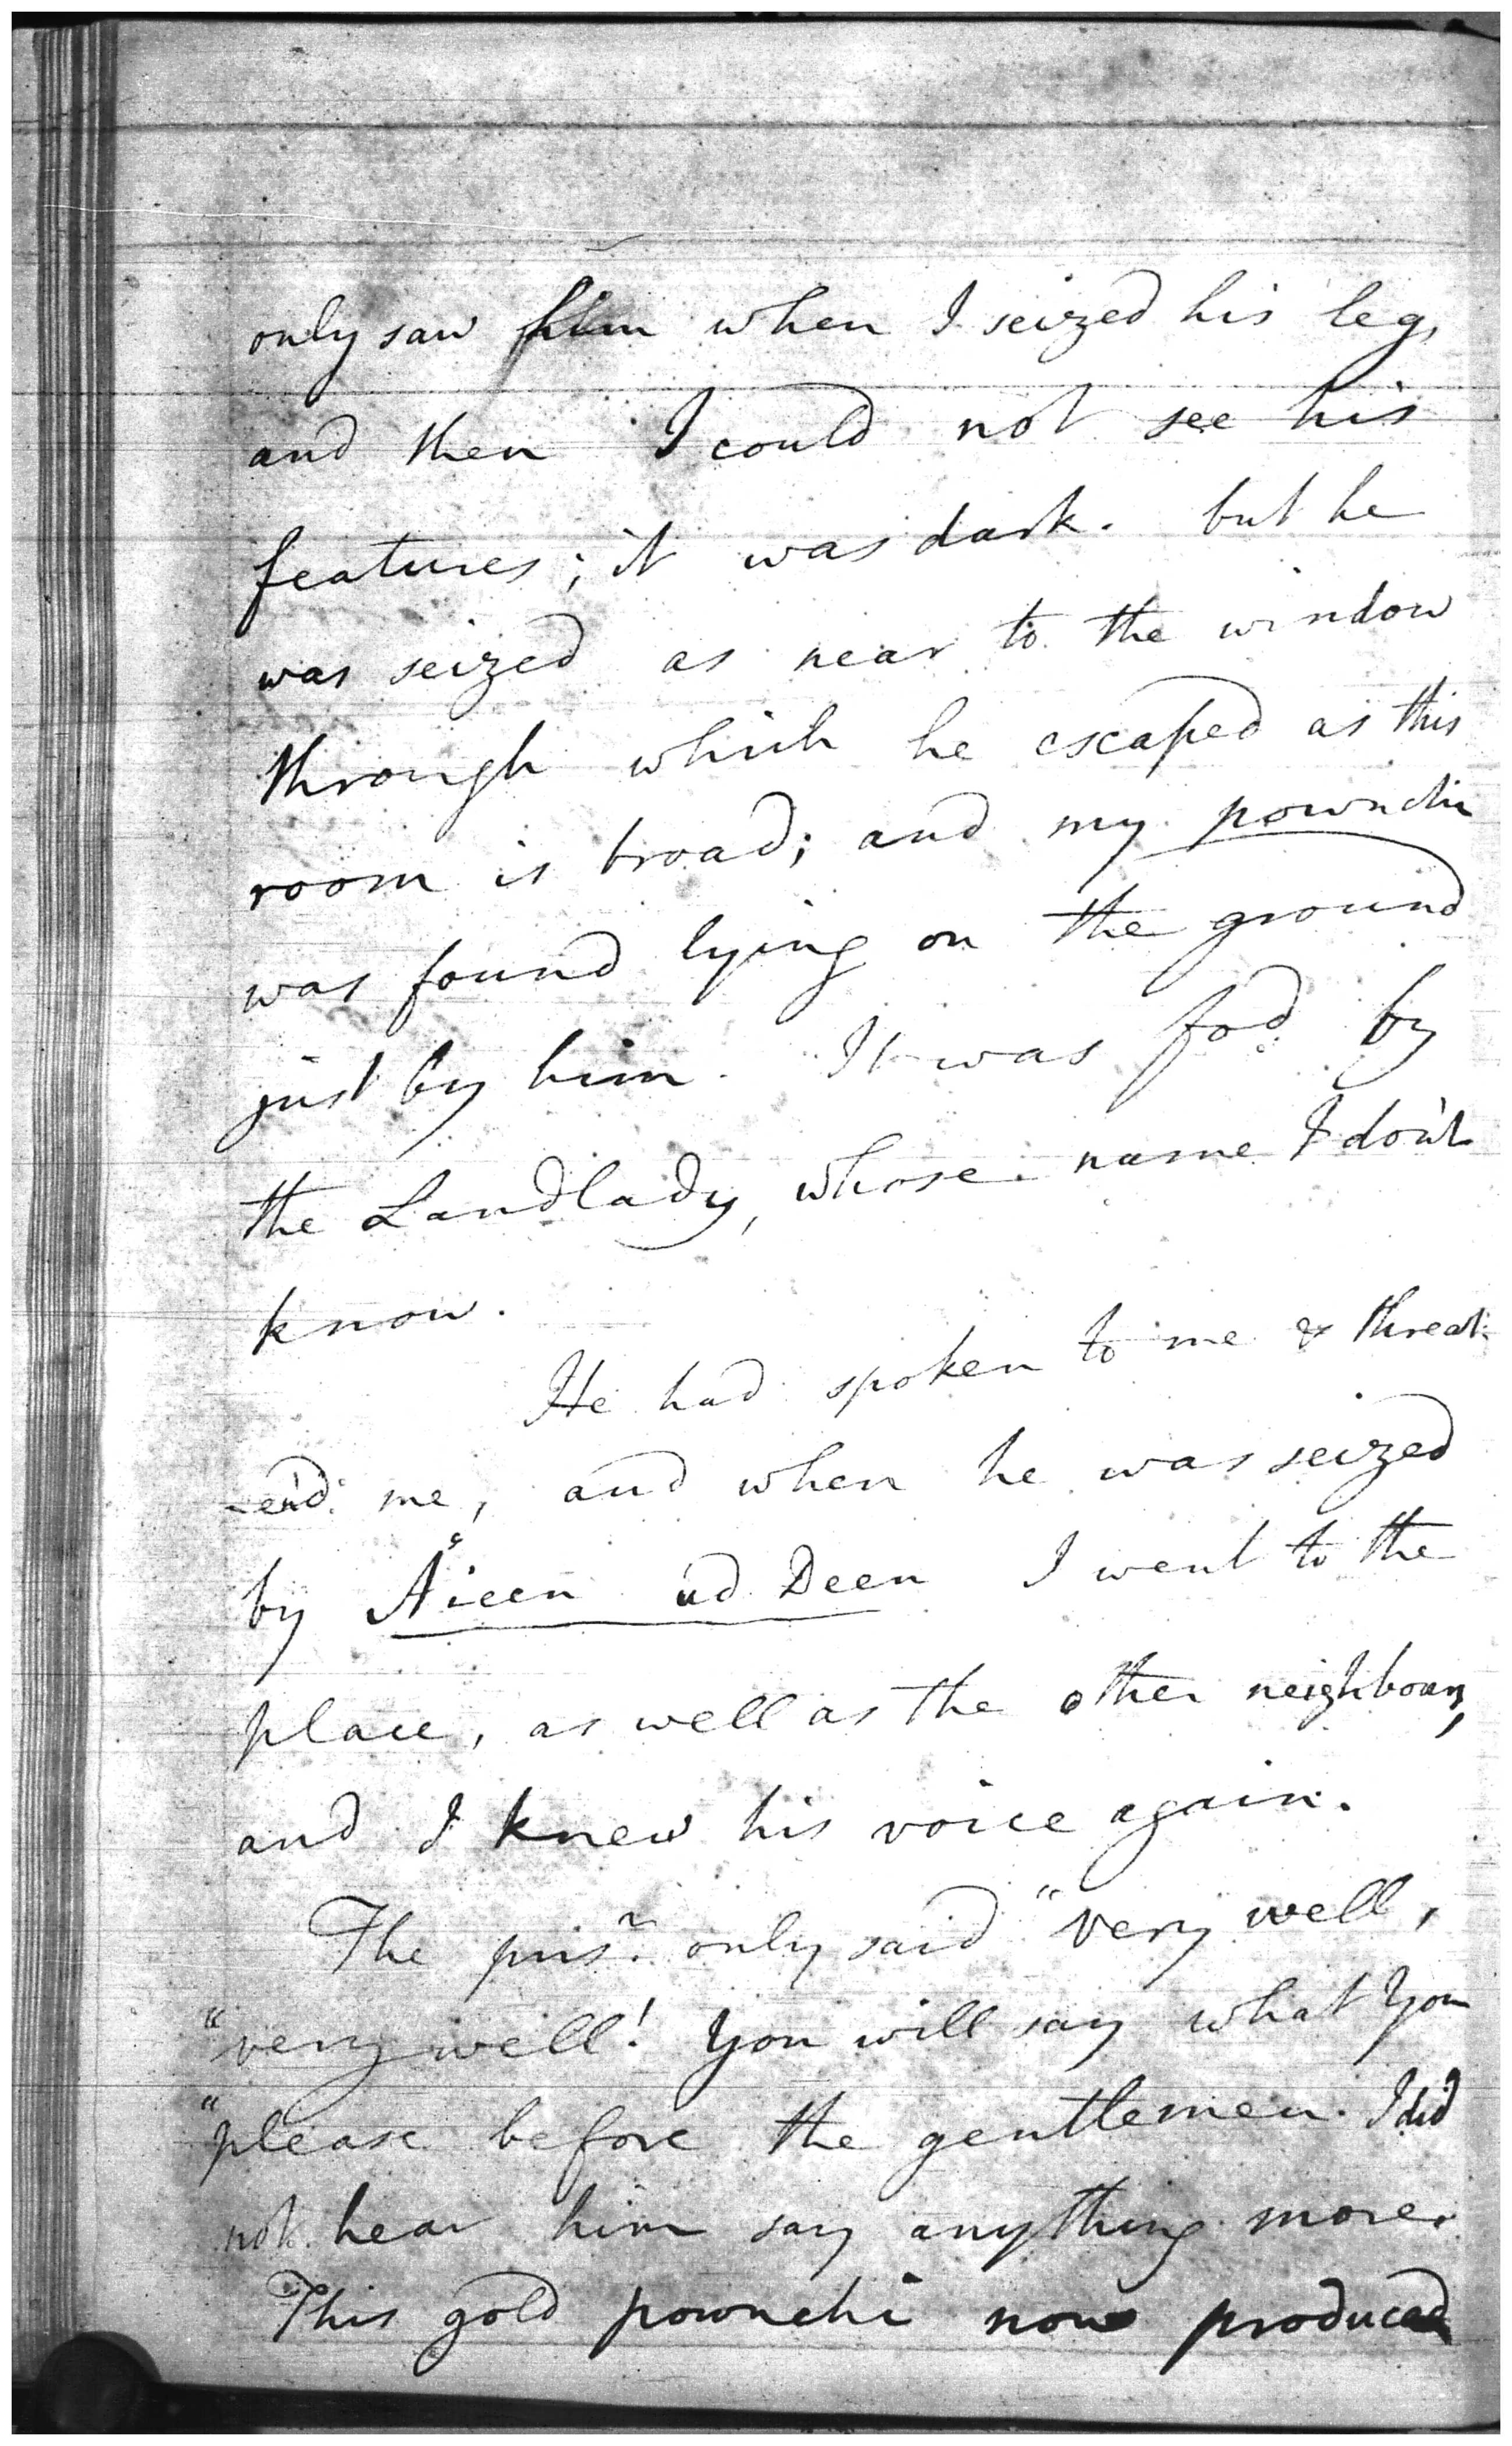 only saw him when I seized his leg,
and then I could not see his
features; it was dark. but he
was seized as near to the window
through which he escaped as this
room is broad; and my pownchi
was found lying on the ground
just by him. It was fod. by
the Landlady, whose name I don't
know.
He had spoken to me & threat-
-en'd me, and when he was seized
by ud Deen I went to the
place, as well as the other neighbours,
and I knew his voice again.
The prisr. only said "very well,
"very well! You will say what you
"please before the gentlemen. I did
not hear him say anything more.
This gold pownchi now produced